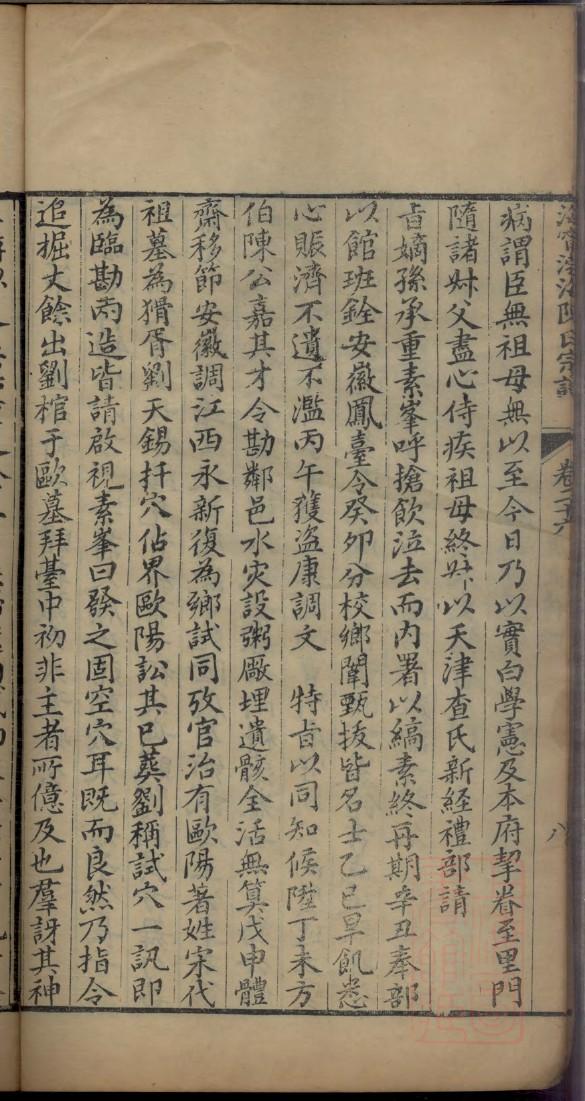 海寧渤海陳氏宗譜 卷二十六 八
病謂臣無祖母無以至今日乃以實白學憲及本府挈眷至里門
隨諸叔父盡心侍疾祖母終叔以天津查氏新経禮部請
㫖嫡孫承重素峯呼搶飲泣去而内署以縞素終再期辛丑奉部
以館班銓安徽鳳臺令癸卯分校鄉闈甄拔皆名士乙巳旱飢悉
心賑濟不遺不濫丙午獲盜康調文 特㫖以同知候陞丁未方
伯陳公嘉其才令勘鄰邑水灾設粥厰埋遺骸全活無算戊申體
齋移節安徽調江西永新復為鄉試同攷官治有歐陽著姓宋代
祖墓為猾胥劉天錫扦穴佔界歐陽訟其已葬劉稱試穴一訊即
為臨勘兩造皆請啟視素峯曰發之固空穴耳既而良然乃指令
追掘丈餘出劉棺于歐墓拜臺中初非主者所億及也羣訝其神